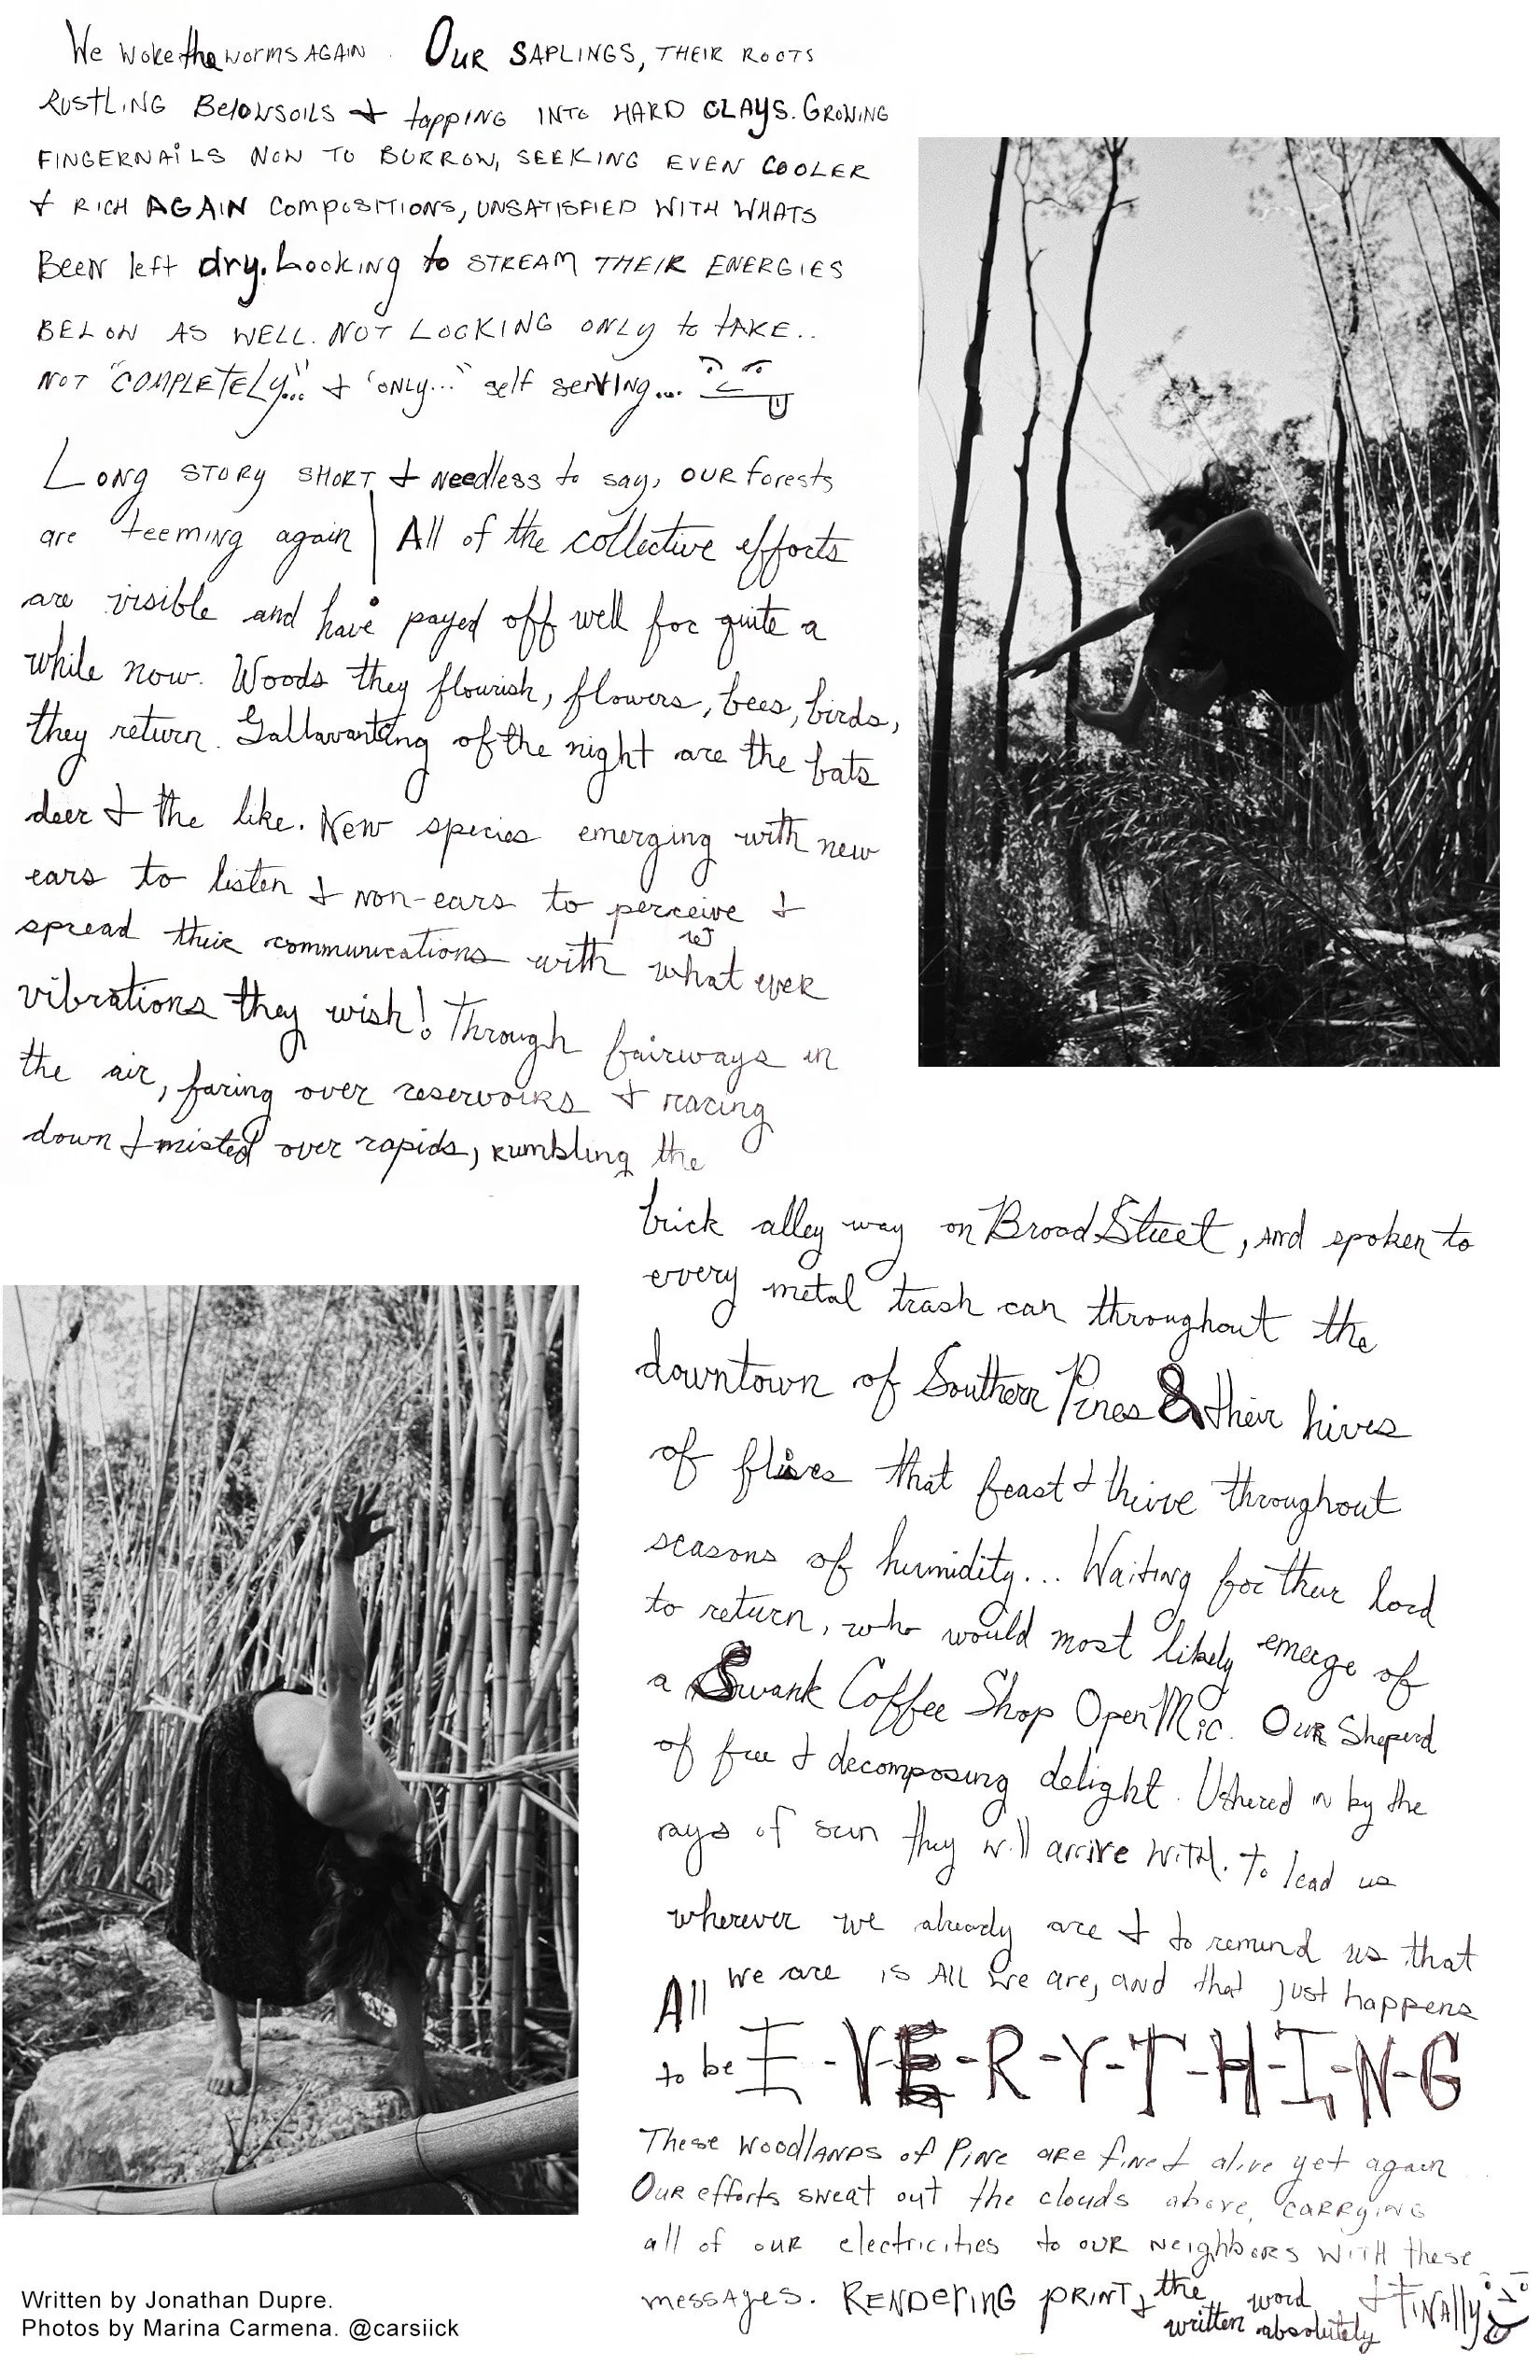 We woke the worms AGAIN. OUR SAPLINGS, THEIR ROOTS
RUSTLING BELOWSOILS & tapping INTO HARD CLAYS. GROWING
FINGERNAILS NOW TO BURROW, SEEKING EVEN COOLER
& RICH AGAIN COMPOSITIONS, UNSATISFIED WITH WHATS
BEEN left dry. Looking to STREAM THEIR ENERGIES
BELOW AS WELL. NOT LOOKING ONLY to TAKE..
NOT "COMPLETELY..." & "ONLY..." self serving...
Long STORY SHORT & Needless to say, OUR forests
are teeming again | All of the collective efforts
are visible and have payed off well for quite a
while now. Woods they flourish, flowers, bees, birds,
they return. Gallavanting of the night are the bats
deer & the like. New species emerging with new
ears to listen & non-ears to perceive &
spread their communications with what ever
vibrations they wish! Through fairways in
the air, faring over reservoirs & racing
down & misted over rapids, rumbling the
brick alley way on Broad Street, and spoken to
every metal trash can throughout the
downtown of Southern Pines & their hives
of flies that feast & thrive throughout
seasons of humidity... Waiting for their lord
to return, who would most likely emerge of
a Swank Coffee Shop Open Mic. OUR Sheperd
of free & decomposing delight. Ushered in by the
rays of sun they will arrive WITH. To lead us
wherever we already are & to remind us that
All we are is All we are, and that just happens
to be E-V-E-R-Y-T-H-I-N-G
These WoodLANDS of PINE ARE fine & alive yet again
OUR efforts sweat out the clouds above, CARRYING
all of OUR electricities to OUR NeighbORS WITH these
messAges. RENDERING PRINT & the written word absolutely & FINAlly
Written by Jonathan Dupre.
Photos by Marina Carmena. @carsiick